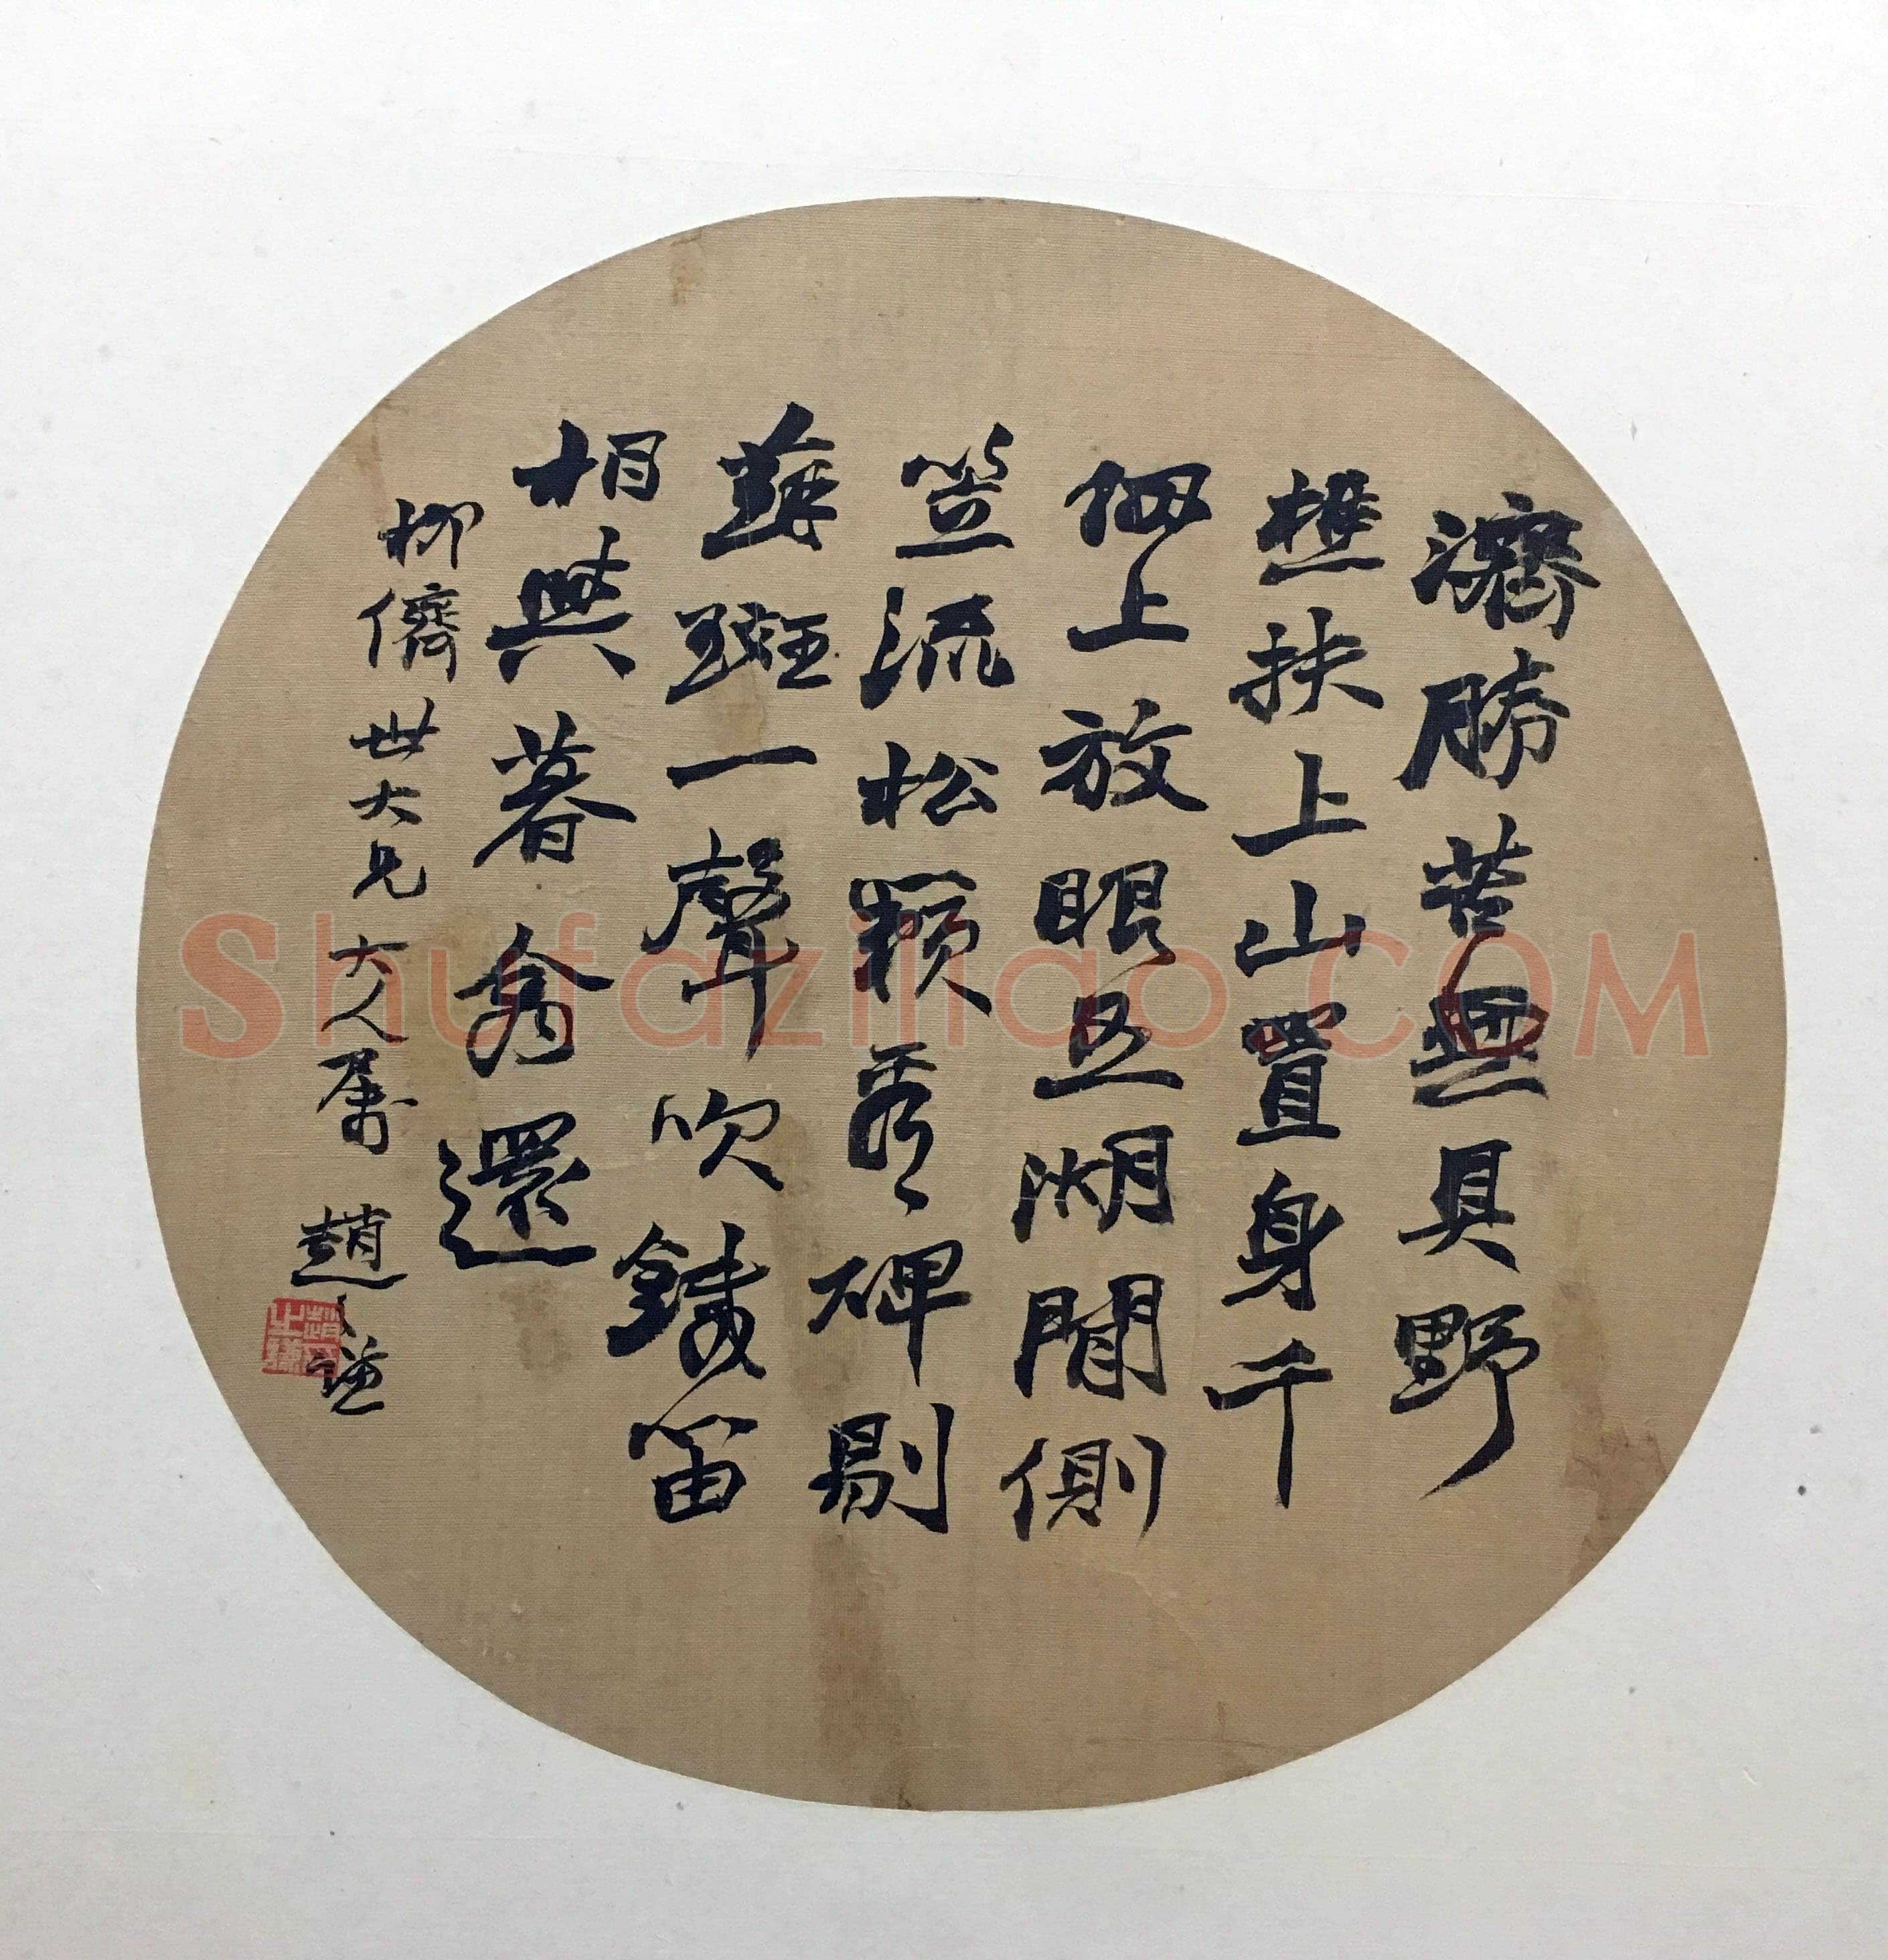 濟勝苦無具野
樵扶上山置身千
仞上放眼五湖間側
笠流松頼看碑剔
蘚斑一聲吹鐵笛
相與暮禽還
柳儕世大兄大人屬 趙之謙
趙之謙
Shufaziliao.COM